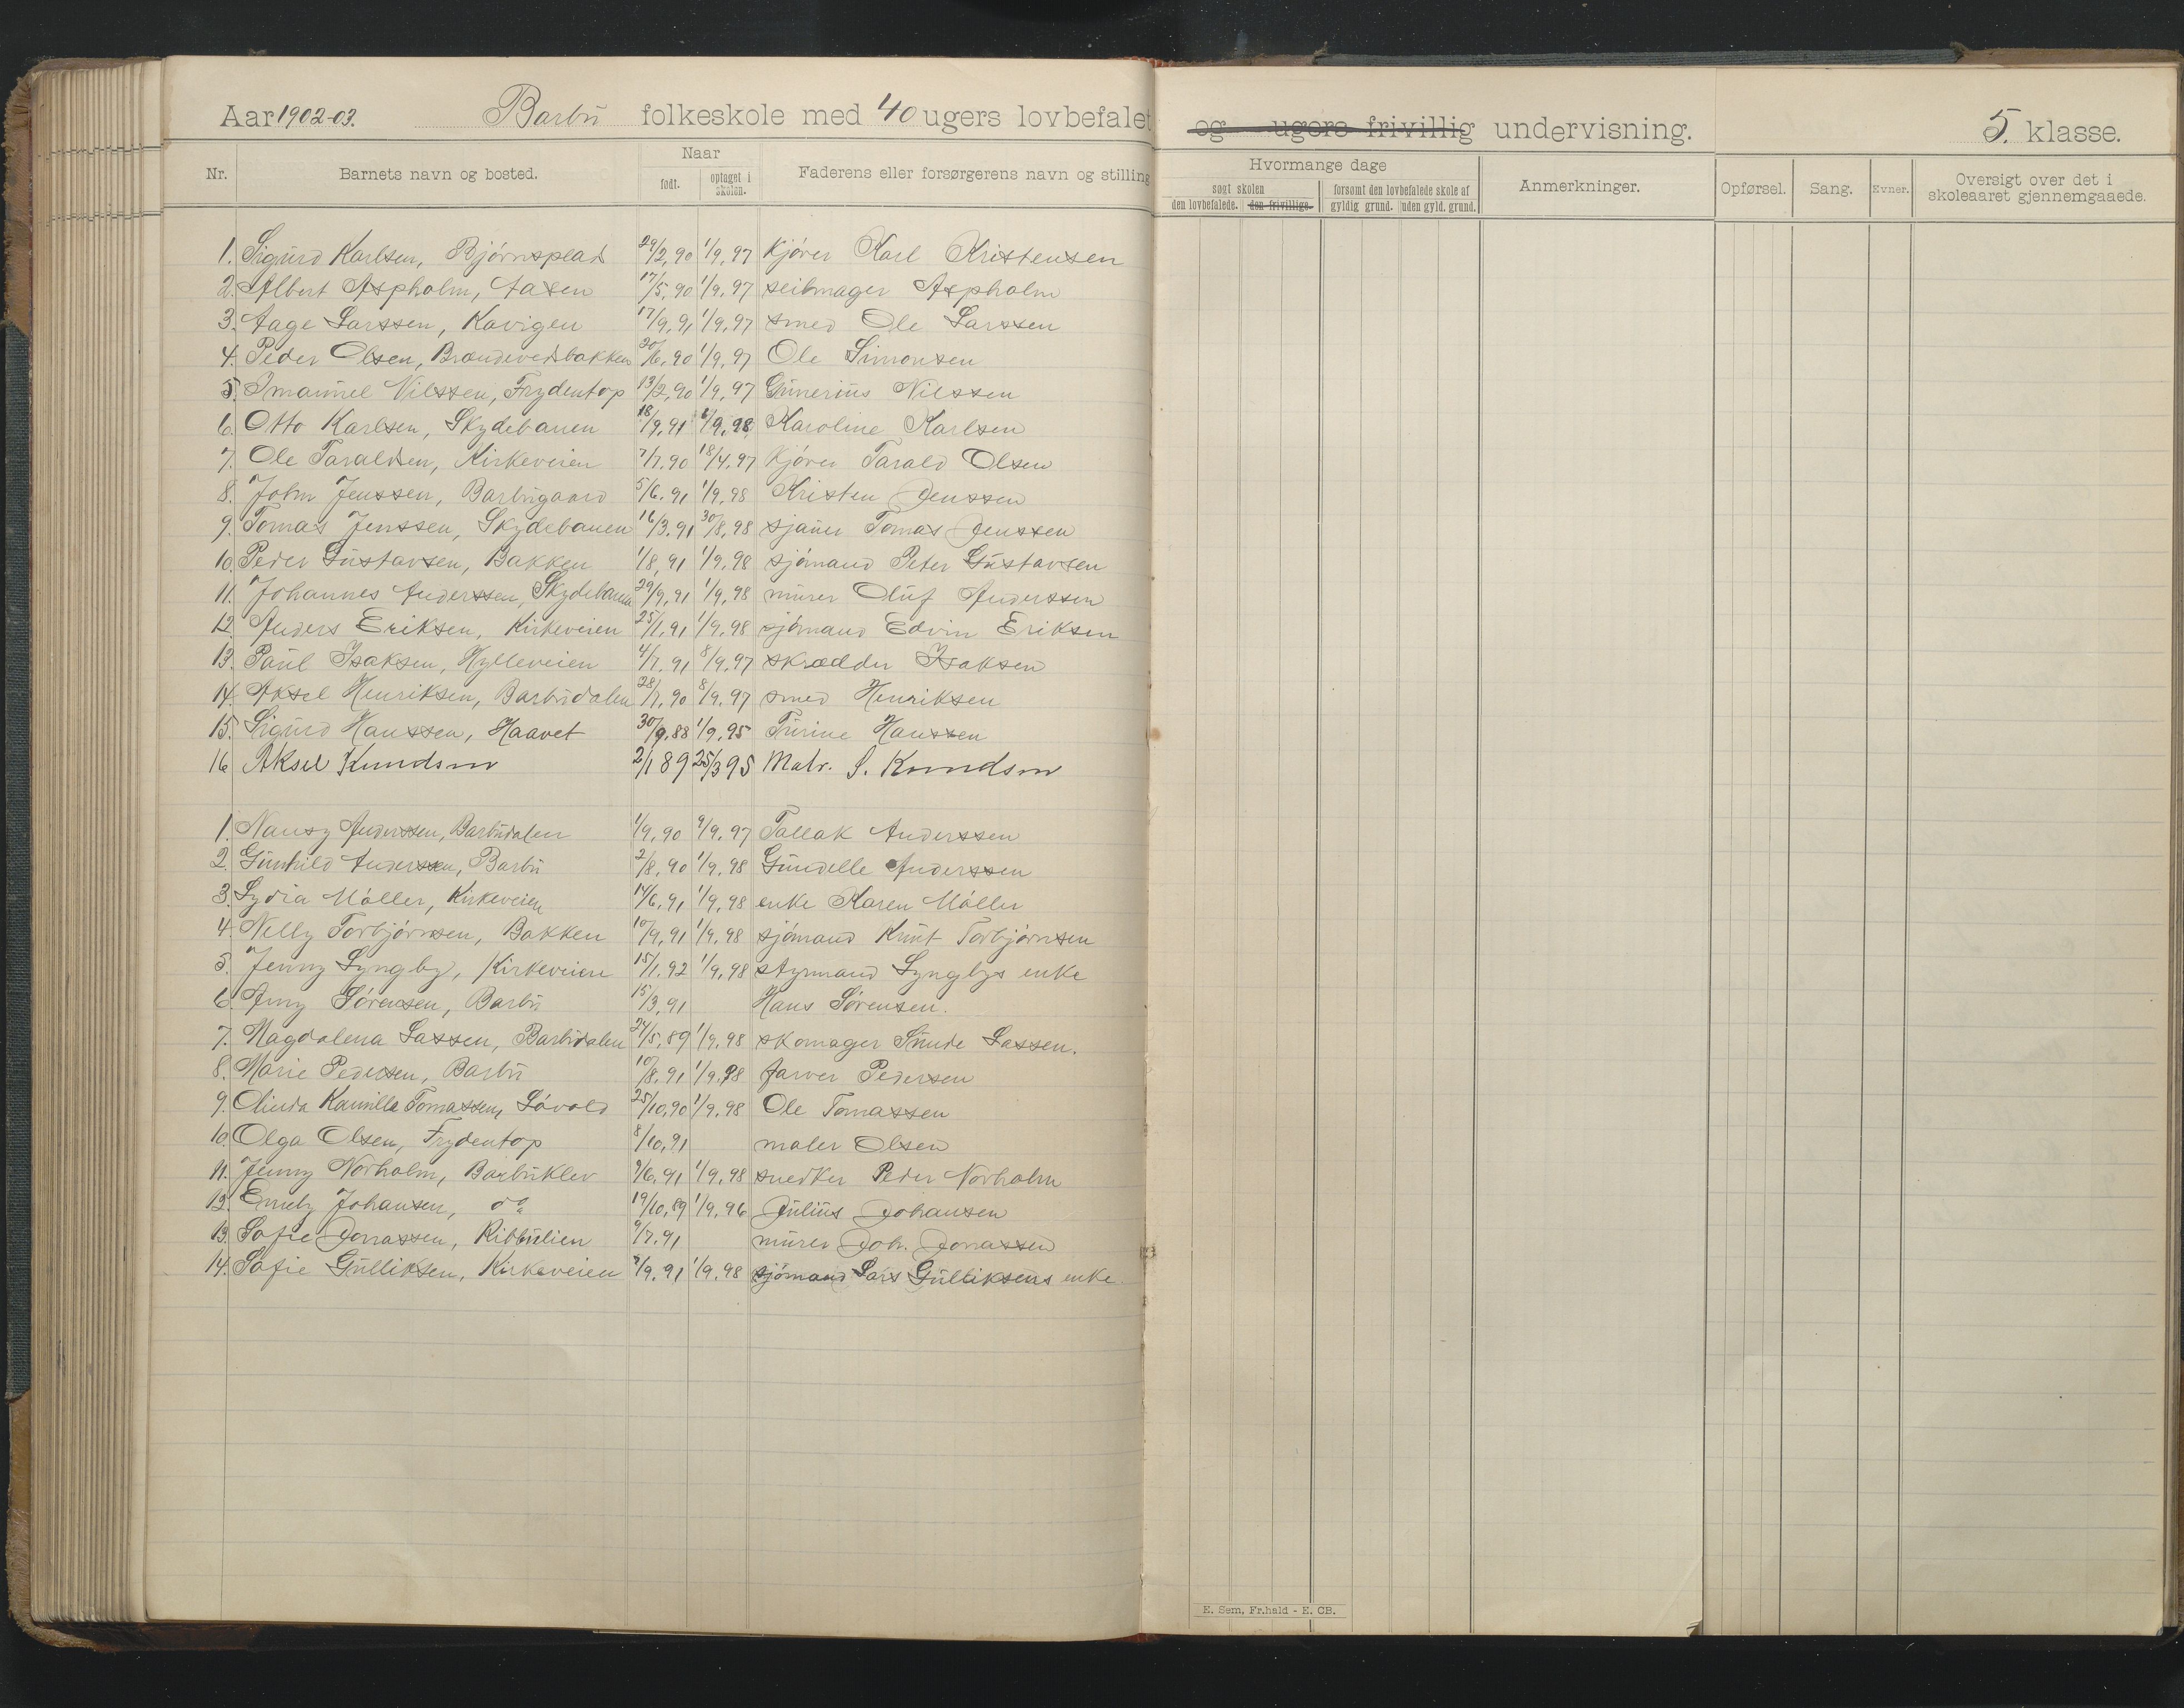 Aar 1902-03. Barbu folkeskole med 40 ugers lovbefalet og ugers frivillig undervisning. 5. klasse.
Nr. Barnets navn og bosted. Naar født. optaget i skolen. Faderens eller forsørgerens navn og stilling
Hvormange dage søgt skolen den lovbefalede. den frivillige. forsømt den lovbefalede skole af gyldig grund. uden gyld. grund. Anmerkninger. Opførsel. Sang. Evner. Oversigt over det i skoleaaret gjennemgaaede.
1. Sigurd Karlsen, Bjørnsplads 29/2,90 1/9,97 Kjører Karl Kristensen
2. Albert Aspholm, Aasen 17/5,90 1/9,97 seilmager Aspholm
3. Aage Larssen, Kavigen 17/9,91 1/9,97 smed Ole Larssen
4. Peder Olsen, Brændevedsbakken 20/6,90 1/9,97 Ole Simonsen
5. Imanuel Nilssen, Frydentop 13/2,90 1/9,97 Gunerius Nilssen
6. Otto Karlsen, Skydebanen 18/9,91 1/9,98 Karoline Karlsen
7. Ole Taraldsen, Kirkeveien 7/7,90 18/4,97 Kjører Tarald Olsen
8. John Jenssen, Barbugaard 5/6,91 1/9,98 Kristen Jenssen
9. Tomas Jenssen, Skydebanen 16/3,91 30/8,98 sjauer Tomas Jenssen
10. Peder Gustavsen, Bakken 1/8,91 1/9,98 sjømand Peter Gustavsen
11. Johannes Anderssen, Skydebanen 29/9,91 1/9,98 murer Oluf Anderssen
12. Anders Eriksen, Kirkeveien 25/1,91 1/9,98 sjømand Edvin Eriksen
13. Paul Isaksen, Hylleveien 4/7,91 8/9,97 skrædder Isaksen
14. Aksel Henriksen, Barbudalen 28/7,90 8/9,97 smed Henriksen
15. Sigurd Hanssen, Haavet 30/9,88 1/9,95 Turine Hanssen
16 Aksel Knudsen 2/1 89 25/3 95 Matr. S. Knudsen
1. Nansy Anderssen, Barbudalen 1/9,90 9/9,97 Tallak Anderssen
2. Gunhild Anderssen, Barbu 2/8,90 1/9,98 Gundelle Anderssen
3. Lydia Møller, Kirkeveien 14/6,91 1/9,98 enke Karen Møller
4. Nelly Torbjørnsen, Bakken 10/9,91 1/9,98 sjømand Knut Torbjørnsen
5. Jenny Lyngby, Kirkeveien 15/1,92 1/9,98 styrmand Lyngbys enke
6. Amy Sørensen, Barbu 15/3,91 Hans Sørensen.
7. Magdalena Lassen, Barbudalen 24/5,89 1/9,98 skomager Snude Lassen.
8. Marie Pedersen, Barbu 10/8,91 1/9,98 farver Pedersen
9. Olinda Kamilla Tomassen, Løvold 25/10,90 1/9,98 Ole Tomassen
10. Olga Olsen, Frydentop 8/10,91 maler Olsen
11. Jenny Norholm, Barbuklev 9/6,91 1/9,98 snedker Peder Norholm
12. Emely Johansen, do 19/10,89 1/9,96 Julius Johansen
13. Sofie Jonassen, Ribbulien 9/7,91 murer Joh. Jonassen
14. Sofie Gulliksen, Kirkeveien 7/9,91 1/9,98 sjømand Lars Gulliksens enke.
E. Sem, Fr.hald - E. CB.